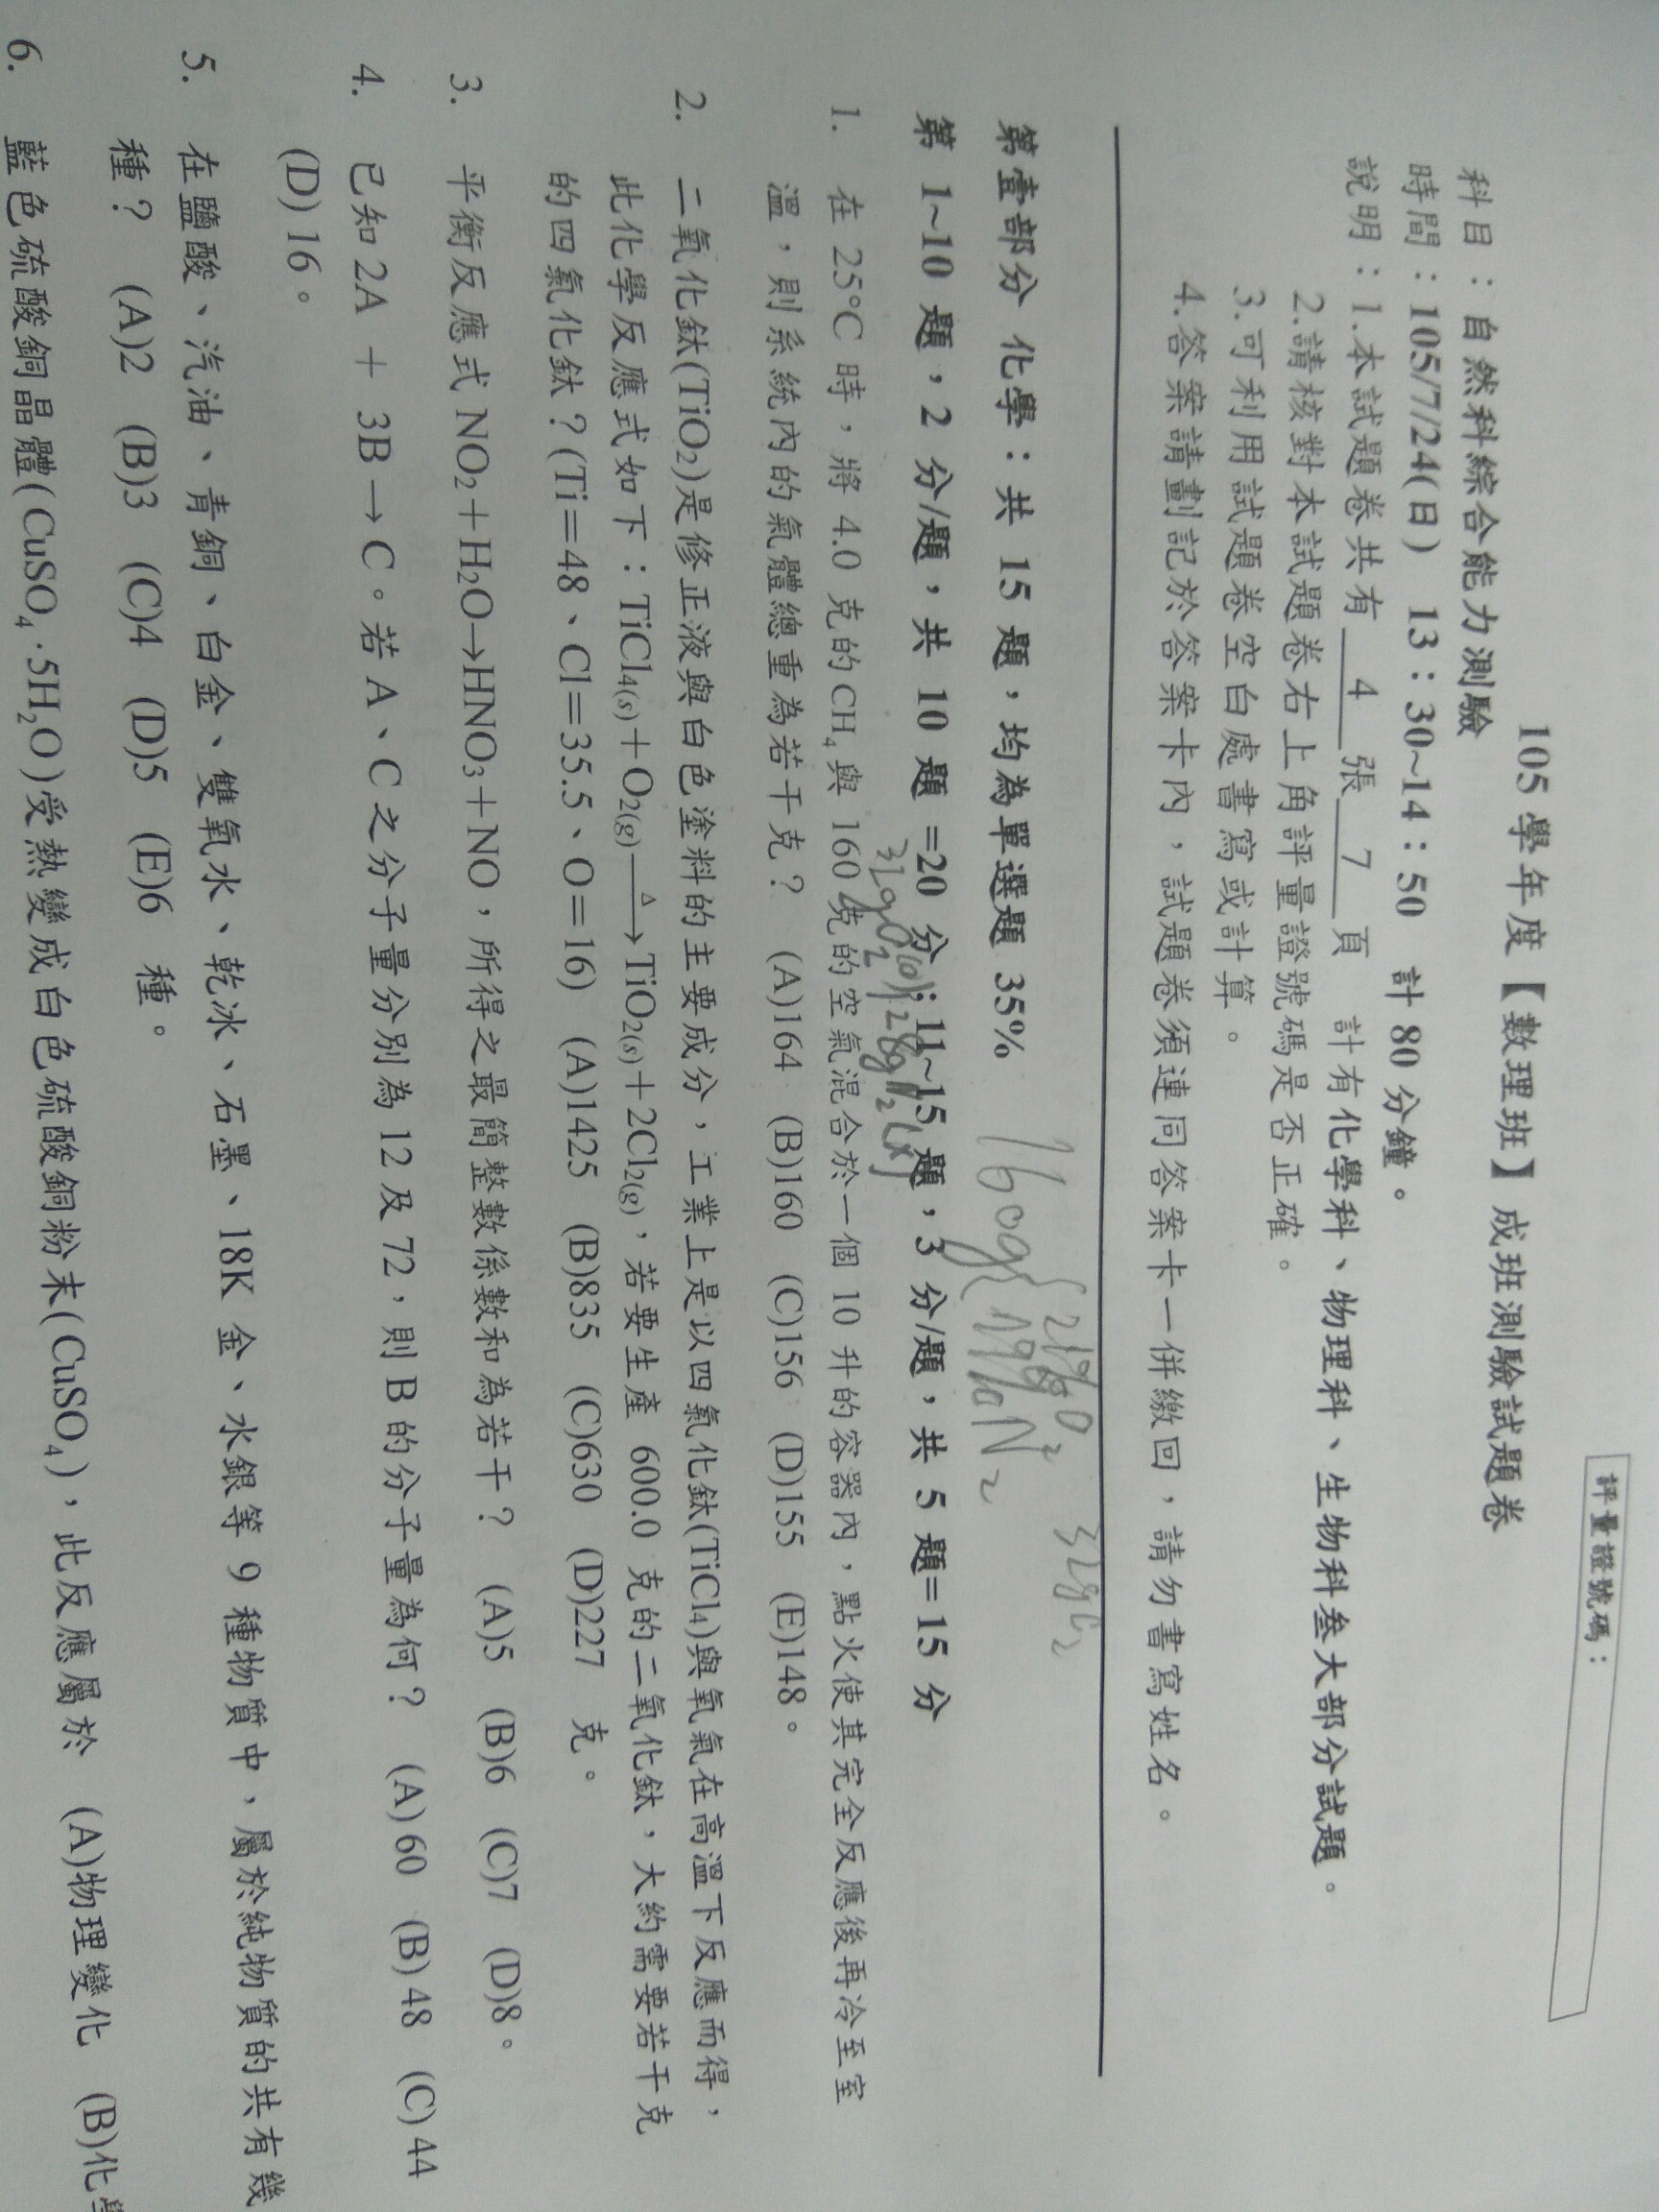 評量證號碼：
105 學年度【數理班】成班測驗試題卷
科目：自然科綜合能力測驗
時間：105/7/24(日) 13：30~14：50 計 80 分鐘。
說明：1.本試題卷共有 4 張 7 頁 計有化學科、物理科、生物科叁大部分試題。
2.請核對本試題卷右上角評量證號碼是否正確。
3.可利用試題卷空白處書寫或計算。
4.答案請劃記於答案卡內，試題卷須連同答案卡一併繳回，請勿書寫姓名。
32g
160g 21% O2
79% N2
第壹部分 化學：共 15 題，均為單選題 35%
第 1~10 題，2 分/題，共 10 題 =20 分；11~15 題，3 分/題，共 5 題=15 分
32gO2 28gN2
1. 在 25°C 時，將 4.0 克的 CH4 與 160 克的空氣混合於一個 10 升的容器內，點火使其完全反應後再冷至室
溫，則系統內的氣體總重為若干克？ (A)164 (B)160 (C)156 (D)155 (E)148。
2. 二氧化鈦(TiO2)是修正液與白色塗料的主要成分，工業上是以四氯化鈦(TiCl4)與氧氣在高溫下反應而得，
此化學反應式如下：TiCl4(s)＋O2(g) Δ→ TiO2(s)＋2Cl2(g)，若要生產 600.0 克的二氧化鈦，大約需要若干克
的四氯化鈦？(Ti＝48、Cl＝35.5、O＝16) (A)1425 (B)835 (C)630 (D)227 克。
3. 平衡反應式 NO2＋H2O→HNO3＋NO，所得之最簡整數係數和為若干？ (A)5 (B)6 (C)7 (D)8。
4. 已知 2A ＋ 3B→C。若 A、C 之分子量分別為 12 及 72，則 B 的分子量為何？ (A) 60 (B) 48 (C) 44
(D) 16。
5. 在鹽酸、汽油、青銅、白金、雙氧水、乾冰、石墨、18K 金、水銀等 9 種物質中，屬於純物質的共有幾
種？ (A)2 (B)3 (C)4 (D)5 (E)6 種。
6. 藍色硫酸銅晶體(CuSO4·5H2O)受熱變成白色硫酸銅粉末(CuSO4)，此反應屬於 (A)物理變化 (B)化學